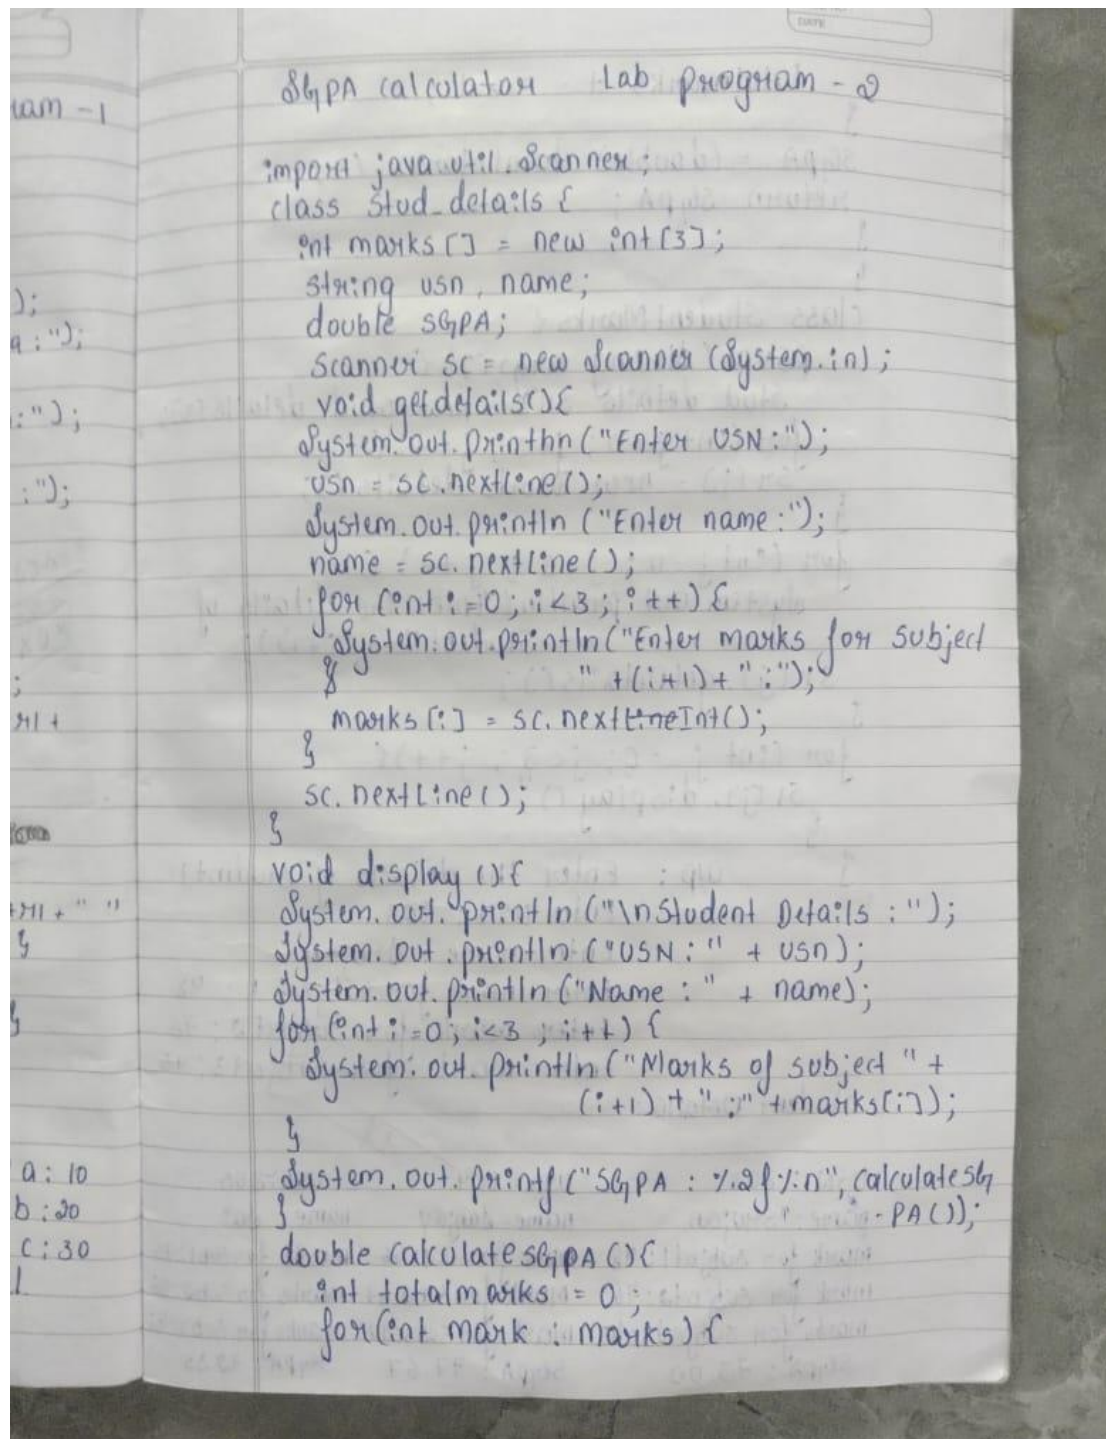 DATE
SGPA calculator Lab program - 2
ram -1
import java.util.Scanner;
class Stud_details {
int marks[] = new int[3];
string usn, name;
double SGPA;
Scanner sc = new Scanner (System.in);
void getdetails(){
System.out.println("Enter USN:");
usn = sc.nextLine();
System.out.println ("Enter name:");
name = sc.nextLine();
for (int i=0; i<3; i++) {
System.out.println("Enter marks for subject
" +(i+1)+ " :");
marks[i] = sc.nextInt();
}
sc.nextLine();
}
void display (){
System.out.println ("\nStudent Details :");
System.out.println ("USN : " + usn);
System.out.println ("Name : " + name);
for(int i=0; i<3 ; i++) {
System.out.println ("Marks of subject " +
(i+1) + " :" + marks[i]);
}
System.out.printf ("SGPA : %.2f%n", calculateSG
}
-PA());
double calculateSGPA (){
int totalmarks = 0;
for(int mark : marks) {
);
a : ");
:");
:");
;
r1 +
+r1 + " "
}
}
a : 10
b : 20
c : 30